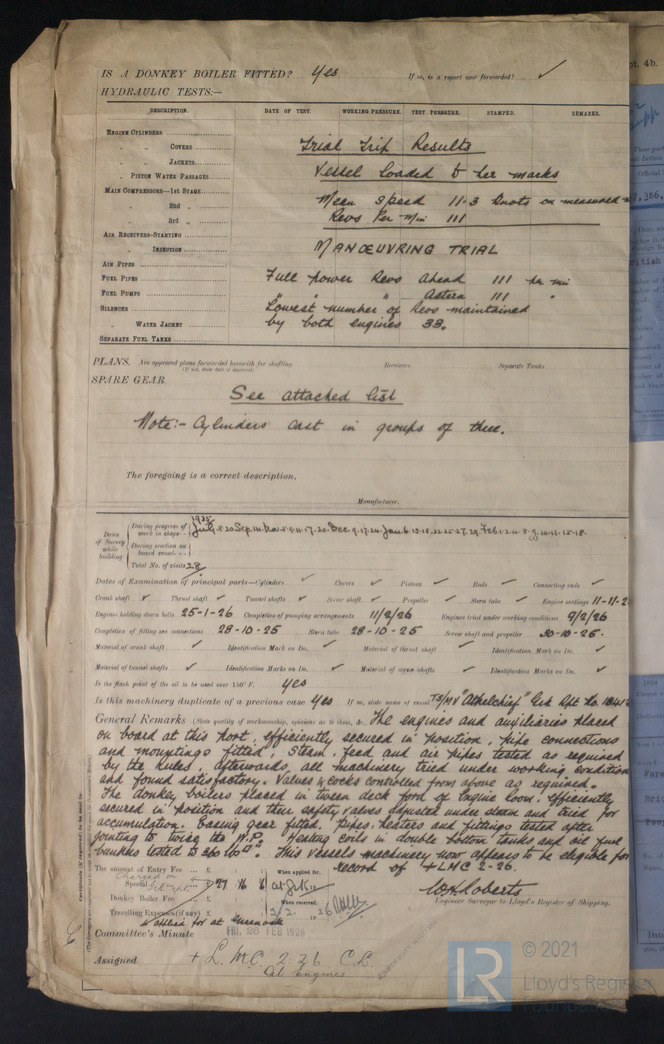 IS A DONKEY BOILER FITTED? Yes If so, is a report now forwarded? ✓
HYDRAULIC TESTS:—
DESCRIPTION. DATE OF TEST. WORKING PRESSURE. TEST PRESSURE. STAMPED. REMARKS.
ENGINE CYLINDERS
" " COVERS Trial Trip Results
" " JACKETS
" PISTON WATER PASSAGES Vessel Loaded to her marks
MAIN COMPRESSORS—1st STAGE Mean speed 11.3 Knots on measured
" 2nd " Revs Per Min 111
" 3rd "
AIR RECEIVERS—STARTING
" INJECTION MANŒUVRING TRIAL
AIR PIPES
FUEL PIPES Full power Revs Ahead 111 per min
FUEL PUMPS " " " Astern 111 "
SILENCER Lowest number of Revs maintained
" WATER JACKET by both engines 33.
SEPARATE FUEL TANKS
PLANS. Are approved plans forwarded herewith for shafting Receivers Separate Tanks
(If not, state date of approval)
SPARE GEAR
See attached list
Note:- Cylinders cast in groups of three.
The foregoing is a correct description,
Manufacturer.
Dates of Survey while building
During progress of work in shops - - 1925 July 8.20 Sep.
During erection on board vessel - - -
Total No. of visits 28
Dates of Examination of principal parts—Cylinders ✓ Covers ✓ Pistons ✓ Rods ✓ Connecting rods ✓
Crank shaft ✓ Thrust shaft ✓ Tunnel shafts ✓ Screw shaft ✓ Propeller ✓ Stern tube ✓ Engine seatings 11-11-2
Engines holding down bolts 25-1-26 Completion of pumping arrangements 11/2/26 Engines tried under working conditions 9/2/26
Completion of fitting sea connections 28-10-25 Stern tube 28-10-25 Screw shaft and propeller 30-10-25.
Material of crank shaft ✓ Identification Mark on Do. ✓ Material of thrust shaft ✓ Identification Mark on Do. ✓
Material of tunnel shafts ✓ Identification Marks on Do. ✓ Material of screw shafts ✓ Identification Marks on Do. ✓
Is the flash point of the oil to be used over 150° F. Yes
Is this machinery duplicate of a previous case Yes If so, state name of vessel TS/MV "Athelchief" Grk Rpt No.
General Remarks (State quality of workmanship, opinions as to class, &c. The engines and auxiliaries placed
on board at this port, efficiently secured in position, pipe connections
and mountings fitted, Steam, feed and air pipes tested as required
by the Rules, afterwards, all machinery tried under working condition
and found satisfactory. Valves & cocks controlled from above as required.
The donkey boilers placed in tween deck for'd of Engine Room, efficiently
secured in position and their safety valves adjusted under steam and tried for
accumulation. Easing gear fitted. Pipes, heaters and fittings tested after
jointing to twice the W.P. Heating coils in double bottom tanks and oil fuel
bunkers tested to. This vessels machinery now appears to be eligible for
record of + LMC 2-26.
The amount of Entry Fee .. £ When applied for,
Special .. £ 27 16 6
Donkey Boiler Fee .. £ When received,
Travelling Expenses (if any) £ 2/2. 1926
applied for at Greenock
W.H. Roberts
Engineer Surveyor to Lloyd's Register of Shipping.
Committee's Minute FRI. 26 FEB 1926
Assigned + L.M.C. 2.26 C.L.
Oil Engines
© 2021
LR Lloyd's Register
Foundation